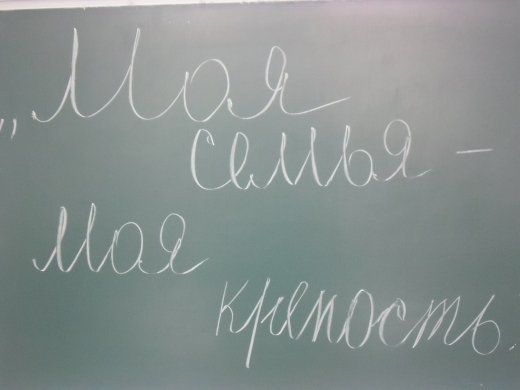 „Моя
семья –
моя
крепость.